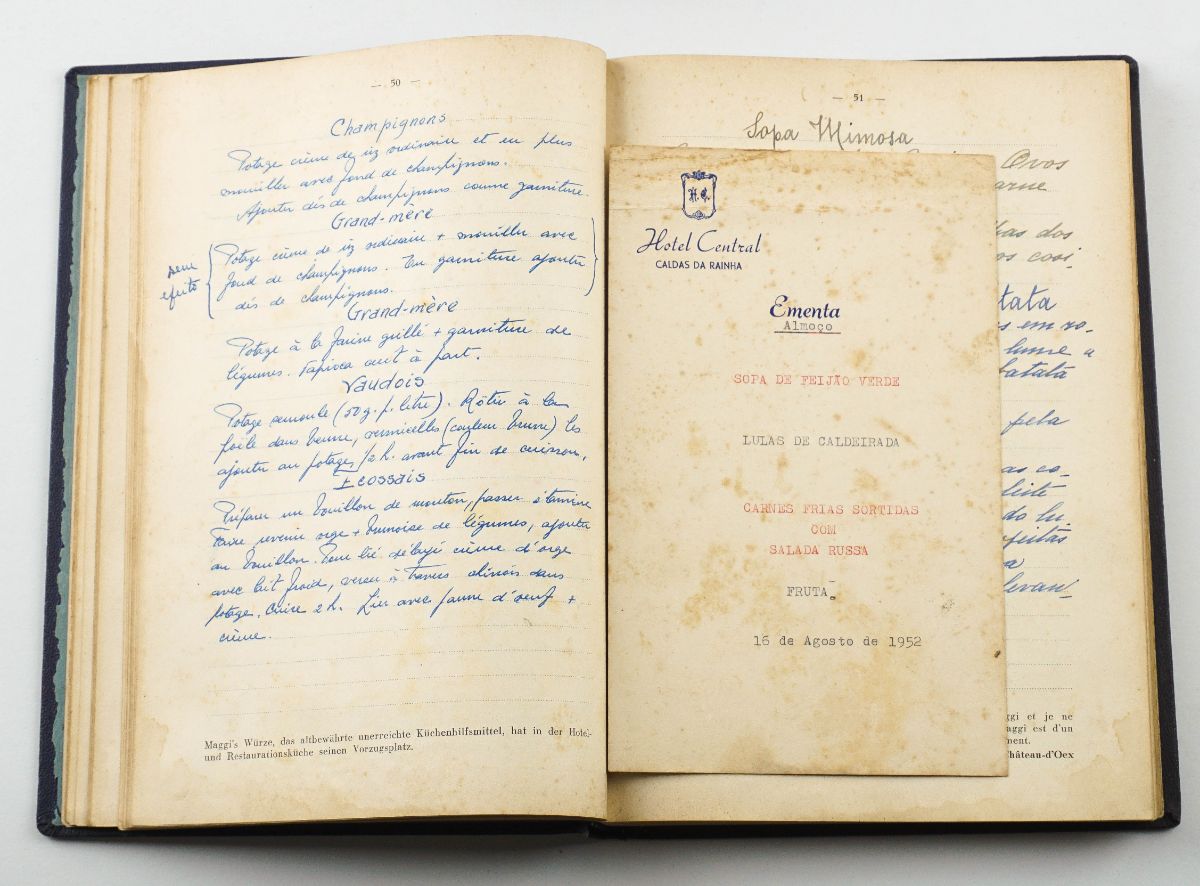 — 50 —
Champignons
Potage crème de riz ordinaire et en plus
mouiller avec fond de champignons.
Ajouter dés de champignons comme garniture.
Grand-mère
Potage crème de riz ordinaire + mouiller avec
fond de champignons. En garniture ajouter
dés de champignons.
sem
efeito
Grand-mère
Potage à la farine grillé + garniture de
légumes. Tapioca cuit à part.
Vaudois
Potage semoule (50 g. p. litre). Rôtir à la
poële dans beurre, vermicelles (couleur brune) les
ajouter au potage 1/2 h. avant fin de cuisson.
Ecossais
Préparer un bouillon de mouton, passer étamine
Faire revenir orge + brunoise de légumes, ajouter
au bouillon. Pour lié délayé crème d'orge
avec lait froid, verser à travers chinois dans
potage. Cuire 2 h. Lier avec jaune d'oeuf +
crème.
Maggi's Würze, das altbewährte unerreichte Küchenhilfsmittel, hat in der Hotel-
und Restaurationsküche seinen Vorzugsplatz.
— 51 —
Sopa Mimosa
Ovos
arne
has dos
os cosi-
tata
s em ro-
lume a
batata
pela
as co-
leite
do lu-
feitas
a
levan-
H.C.
Hotel Central
CALDAS DA RAINHA
Ementa
Almoço
SOPA DE FEIJÃO VERDE
LULAS DE CALDEIRADA
CARNES FRIAS SORTIDAS
COM
SALADA RUSSA
FRUTA.
16 de Agosto de 1952
ggi et je ne
aggi est d'un
ment.
Château-d'Oex